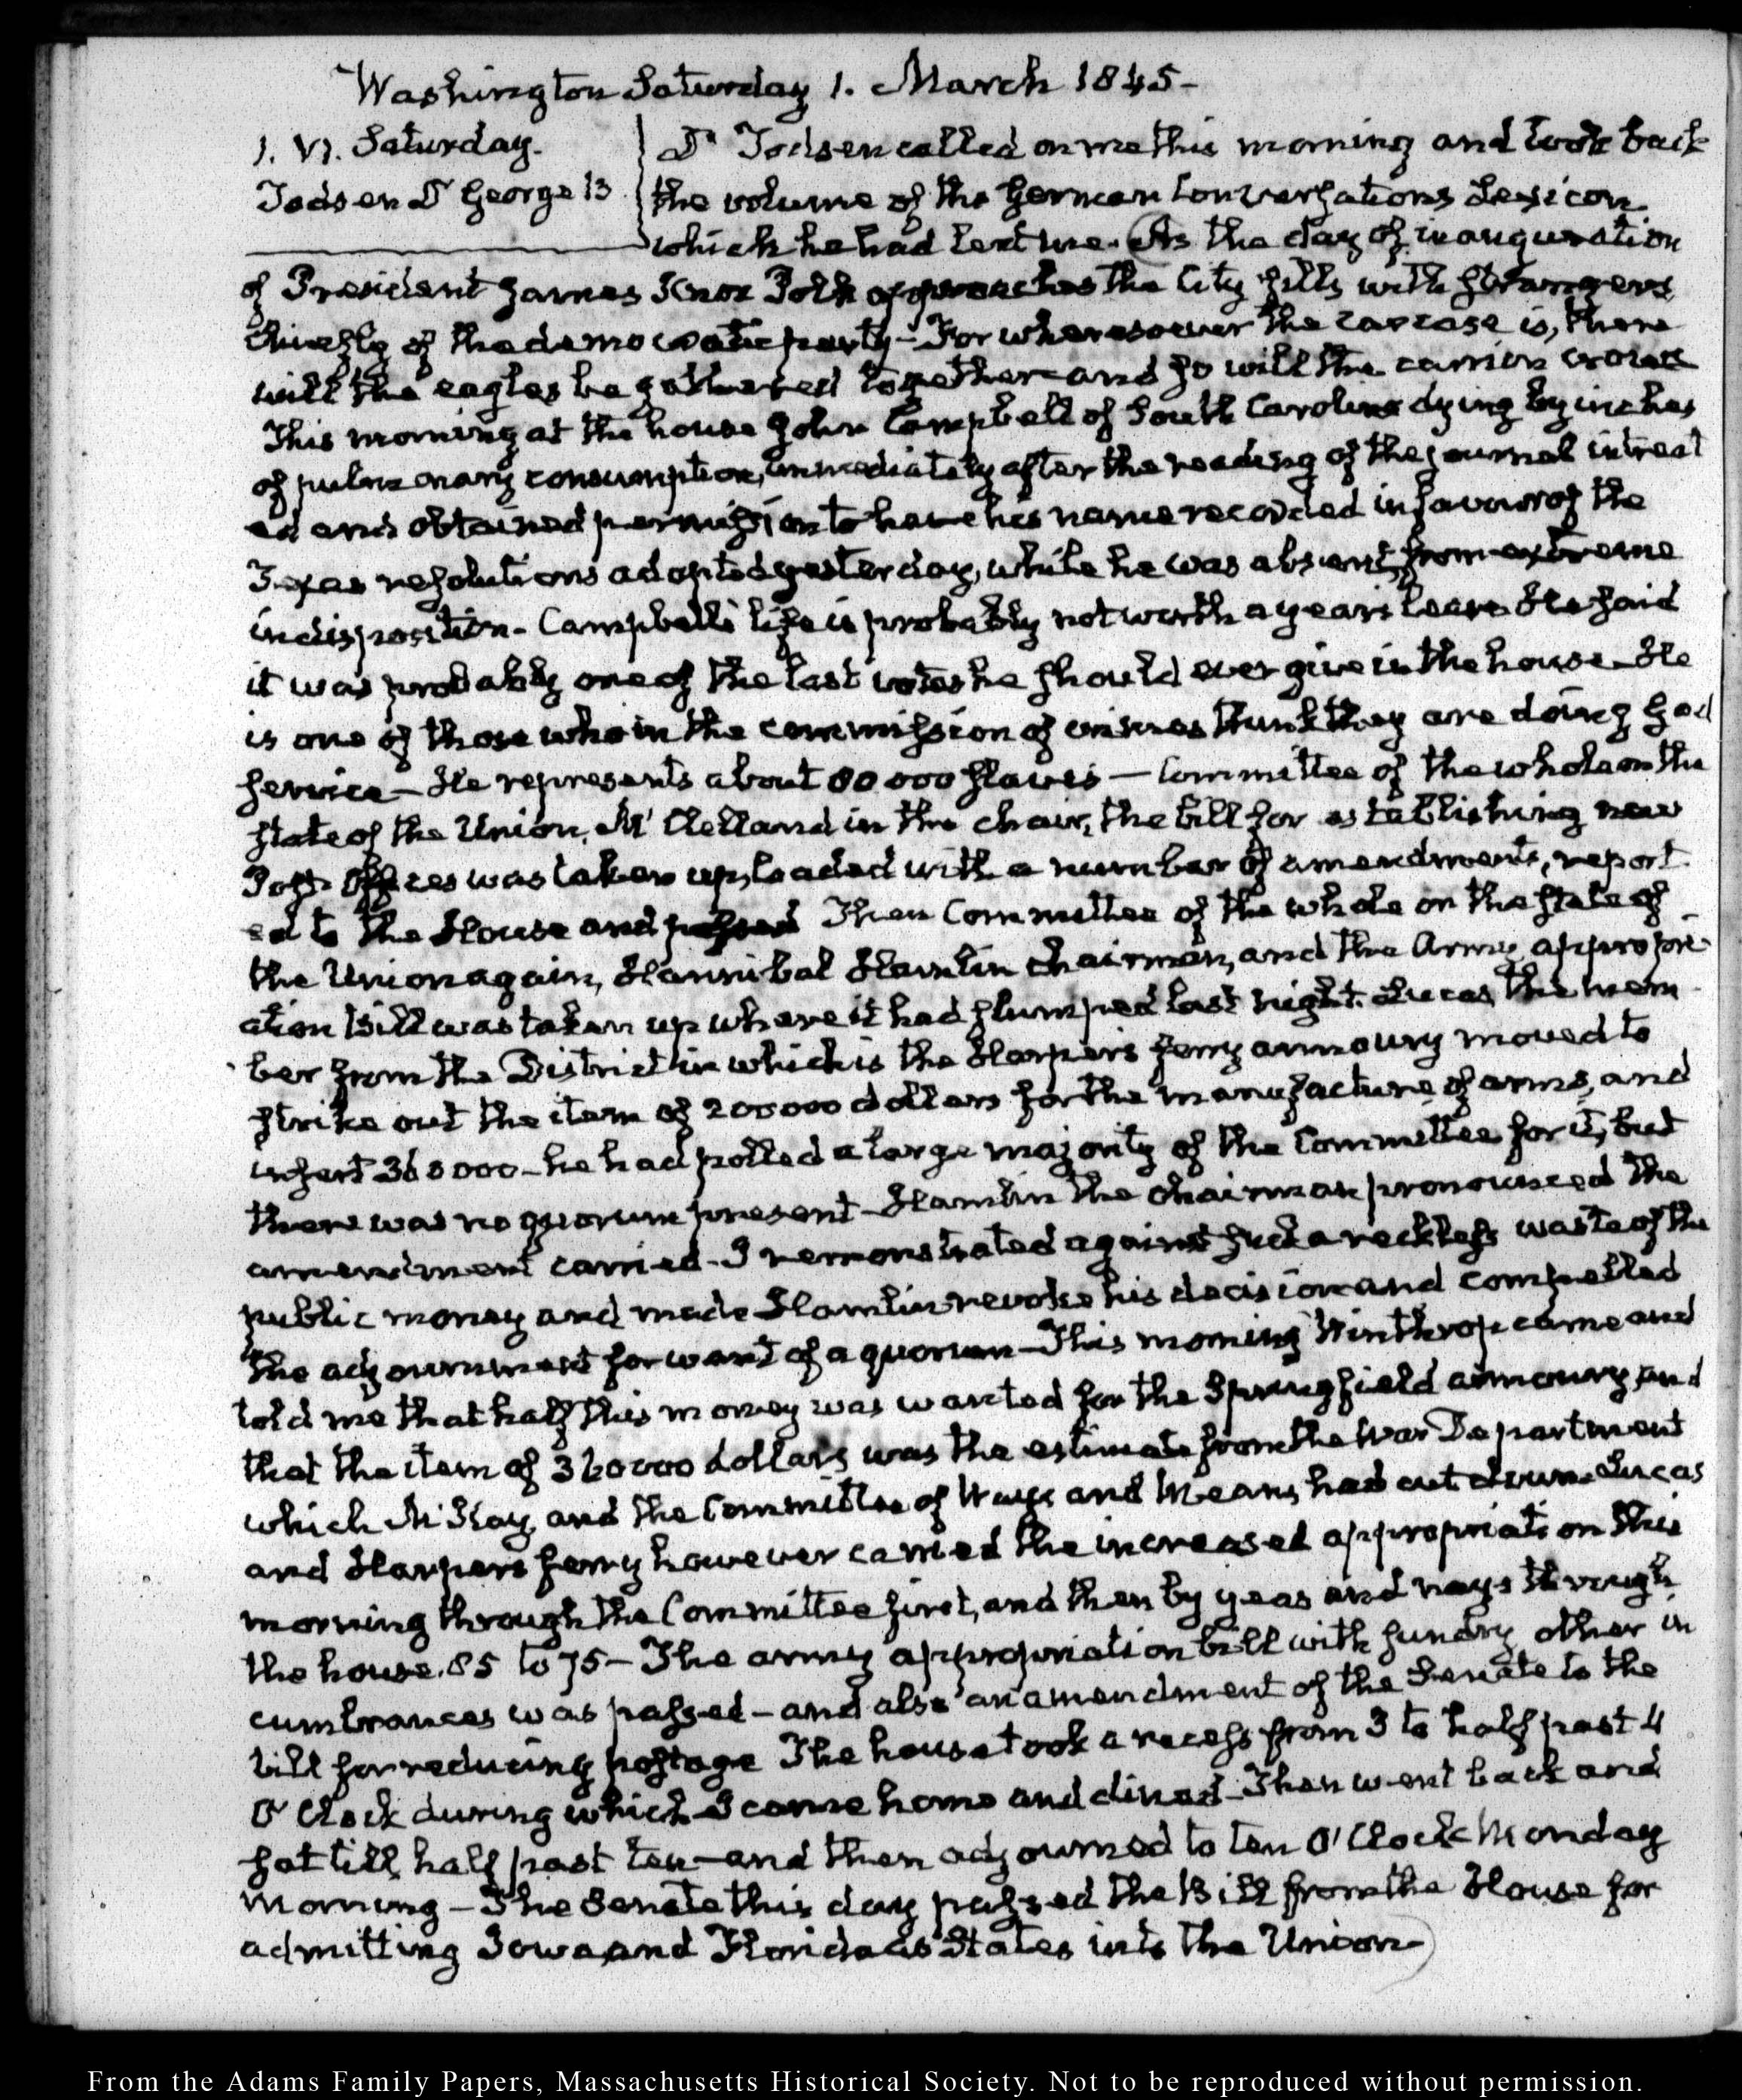 Washington Saturday 1. March 1845-
1. VI. Saturday.
Todsen Dr George 13
Dr Todsen called on me this morning and took back
the volume of the German Conversations Lexicon
which he had lent me. As the day of inauguration
of President James Knox Polk approaches the City fills with strangers
chiefly of the democratic party - For wheresoever the carcase is, there
will the eagles be gathered together and so will the carrion crows
This morning at the house John Campbell of South Carolina dying by inches
of pulmonary consumption, immediately after the reading of the journal intreat
ed and obtained permission to have his name recorded in favour of the
Texas resolutions adopted yesterday, while he was absent, from extreme
indisposition - Campbell's life is probably not worth a years lease He said
it was probably one of the last votes he should ever give in the house - He
is one of those who in the commission of crimes think they are doing God
service - He represents about 80000 slaves - Committee of the whole on the
state of the Union, McClelland in the chair, the bill for establishing new
Post Offices was taken up, loaded with a number of amendments, report
ed to the House and passed Then Committee of the whole on the state of
the Union again, Hannibal Hamlin chairman, and the Army appropri
ation bill was taken up where it had slumped last night. Lucas, the mem
ber from the District in which is the Harpers ferry armoury moved to
strike out the item of 200000 dollars for the manufacture of arms, and
insert 360000 - he had polled a large majority of the Committee for it, but
there was no quorum present - Hamlin the chairman pronounced the
amendment carried - I remonstrated against such a reckless waste of the
public money and made Hamlin revoke his decision and compelled
the adjournment for want of a quorum - This morning Winthrop came and
told me that half this money was wanted for the Springfield armoury, and
that the item of 360000 dollars was the estimate from the War Department
which McKay and the Committee of Ways and Means, had cut down. Lucas
and Harpers ferry however carried the increased appropriation this
morning through the Committee first, and then by yeas and nays through
the house. 85 to 75 - The army appropriation bill with sundry other in
cumbrances was passed - and also an amendment of the Senate to the
bill for reducing postage The house took a recess from 3 to half past 4
O'Clock during which I came home and dined - Then went back and
sat till half past ten - and then adjourned to ten O'Clock Monday
morning - The Senate this day passed the Bill from the House for
admitting Iowa, and Florida as States into the Union
From the Adams Family Papers, Massachusetts Historical Society. Not to be reproduced without permission.